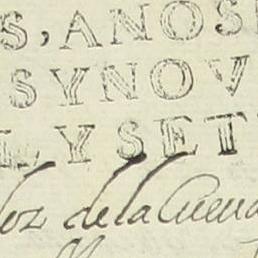 S, ANOS
SYNOV
LYSET
loz de la Cueua